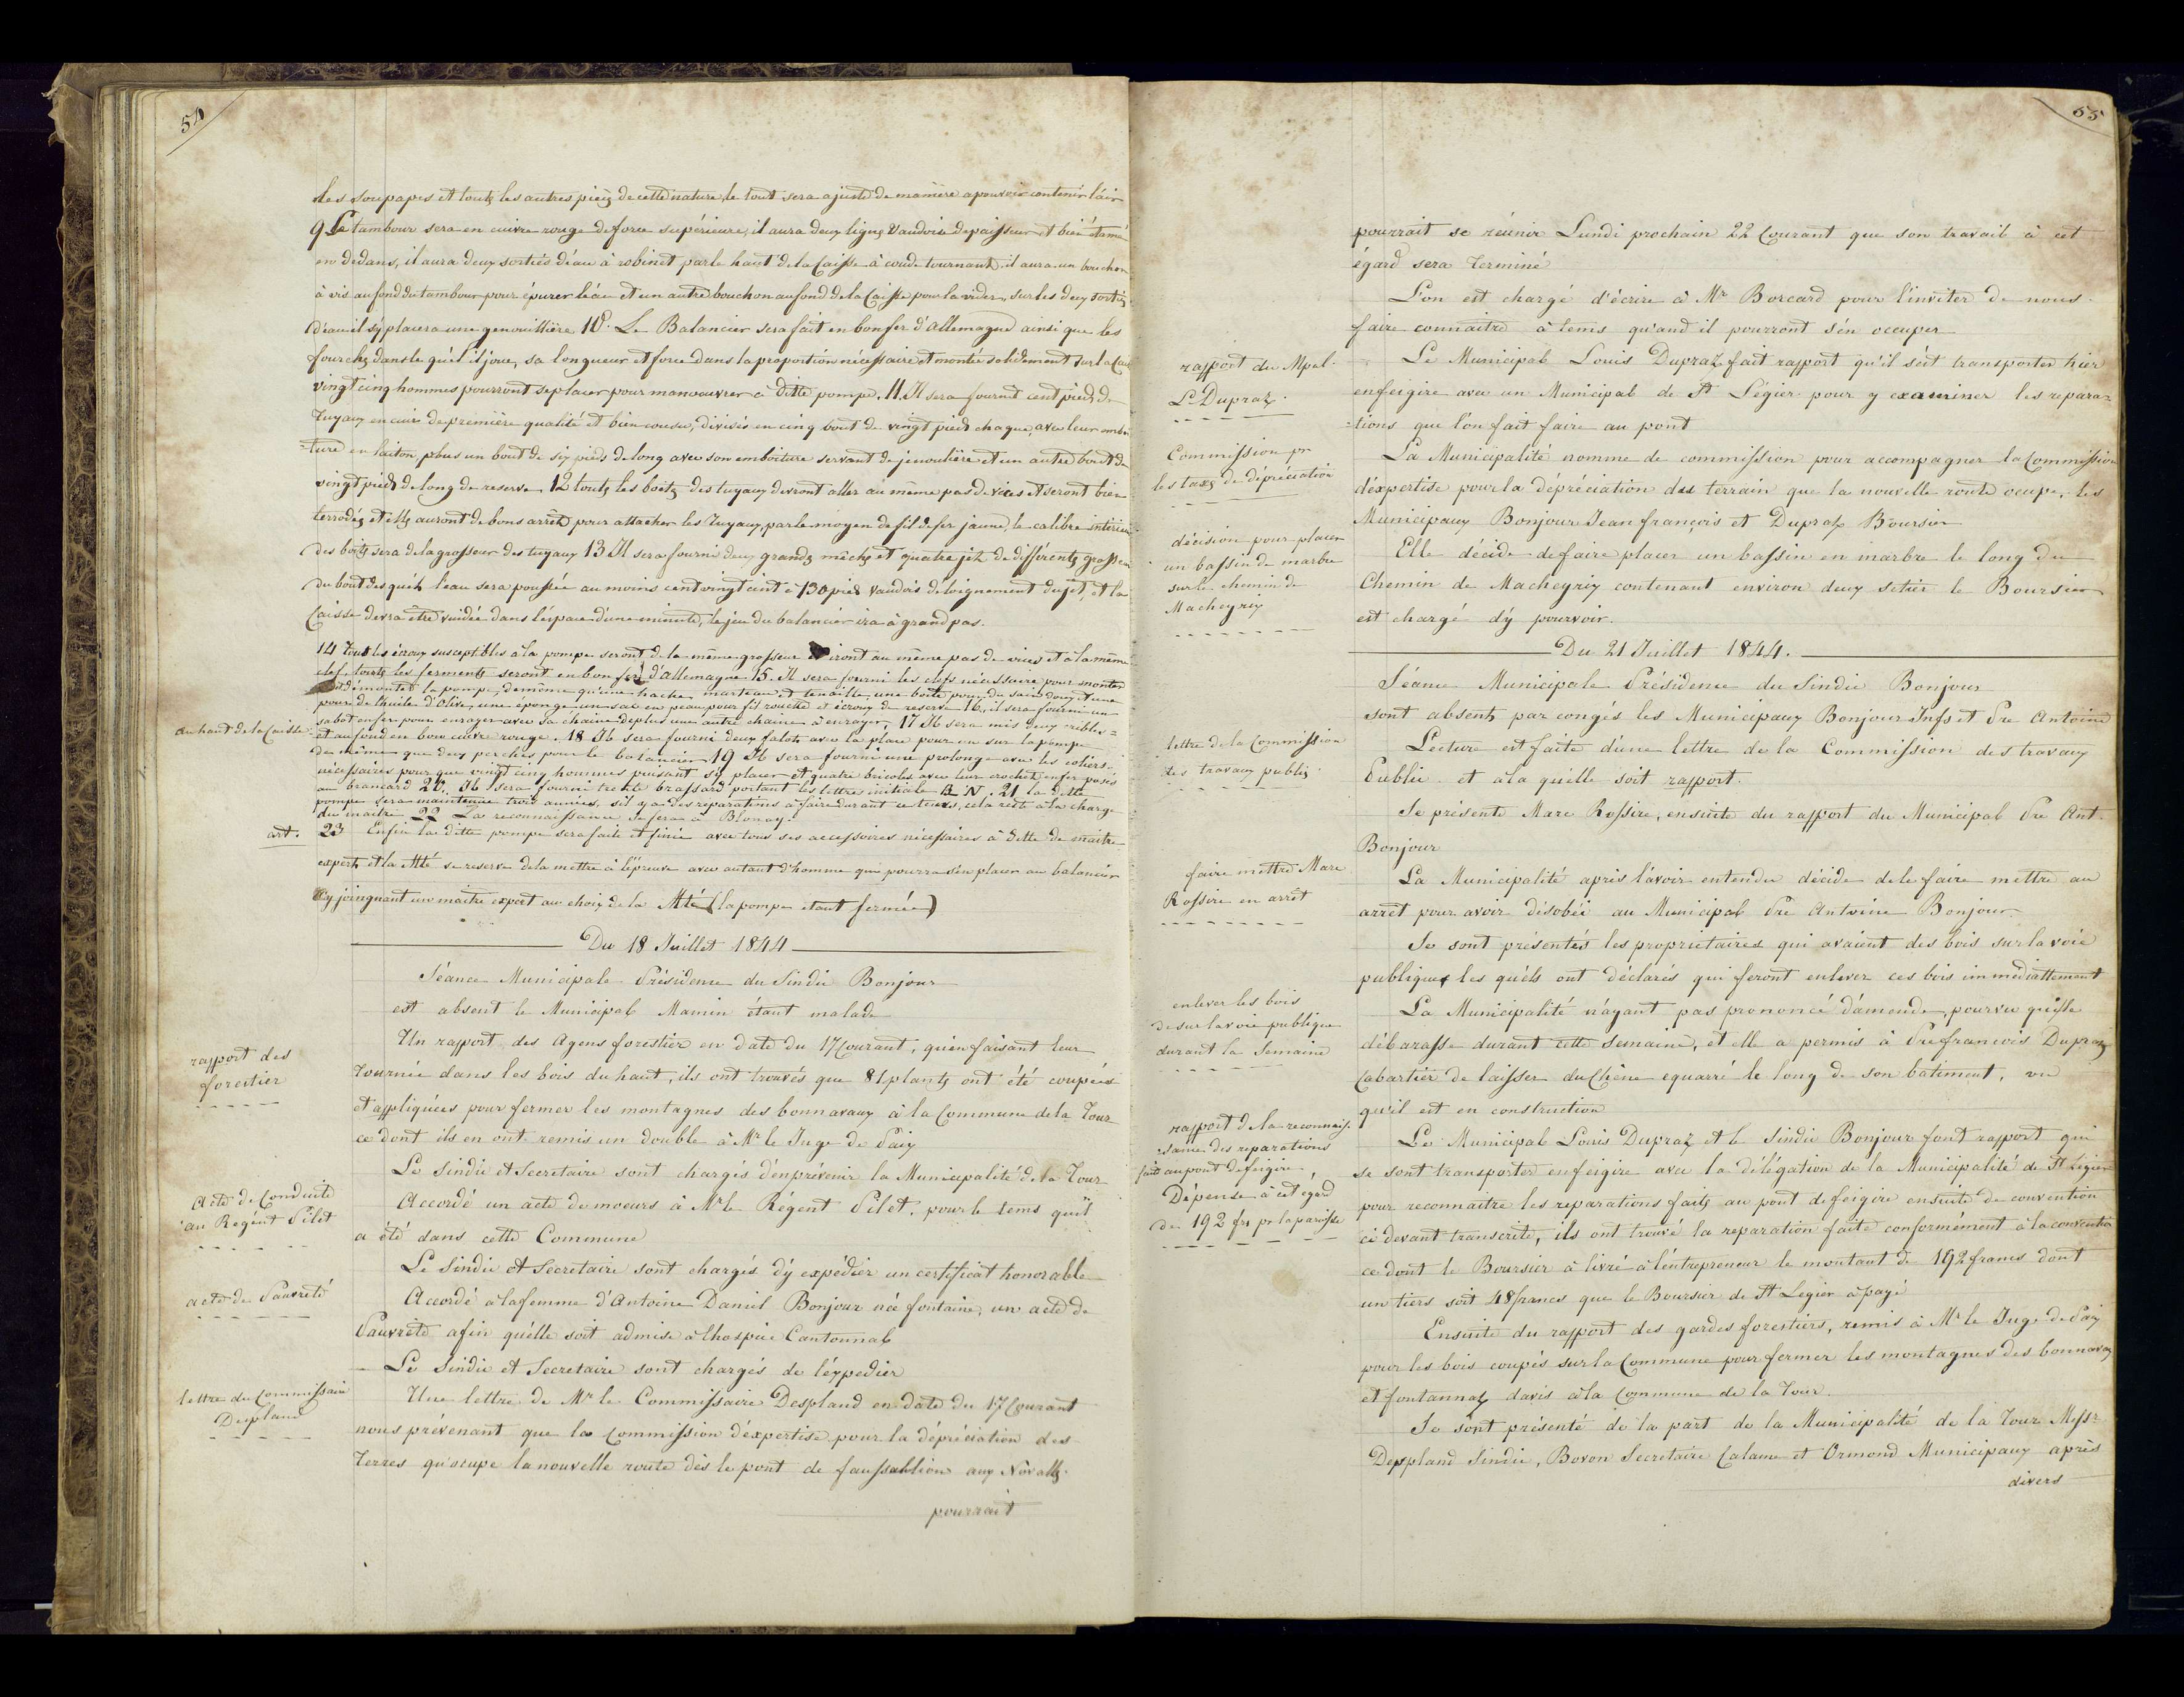 54
les soupapes et touts les autres pieçs de cette nature, le tout sera ajusté de manière a pouvoir contenir l'air
9 Le tambour sera en cuivre rouge de force supérieure, il aura deux lignes Vaudoise depaisseur et bien étamé
en dedans, il aura deux sortiés d'éau à robinet par le haut de la Caisse à coude tournant, il aura un bouchon
à vis au fond du tambour pour épurer l'éau et un autre bouchon au fond de la Caisse pour la vider, sur les deux sorties
d'eau il s'y placera une genouillière 10°. Le Balancier sera fait en bon fer d'allemagne ainsi que les
fourchs dans le qu'el il joue, sa longueur et force dans la proportion nécessaire et monté solidement sur la Cais
vingt cinq hommes pourront se placer pour manoeuvrer à ditte pompe. 11. Il sera fournit cent pieds de
Tuyaux en cuir de première qualité et bien cousu, divisés en cinq bout de vingt pieds chaque, avec leur emboi
=ture en laiton, plus un bout de six pieds de long avec son emboiture servant de jenoulière et un autre bout de
vingt pieds de long de reserve 12 touts les boits des tuyaux devront aller au même pas de vices et seront bien
terrodés et ells auront de bons arrêts pour attacher les Tuyaux, par le moyen de fil de fer jaune, le calibre intérieur
des boits sera de la grosseur des tuyaux 13 Il sera fourni deux grands mâchs et quatre jets de différents grosseur
du bout des quéls l'eau sera poussée au moins cent vingt cint à 130 pieds vaudois d'éloignement du jet, et la
Caisse devra être vuidée dans l'éspace d'une minute, le jeu du balancier ira à grand pas.
14 Touts les écroux susceptibles à la pompe seront de la même grosseur et iront au même pas de vices et à la même
clef, touts les ferments seront en bon fer d'allemague 15. Il sera fourni les clefs nécessaire pour monter
et démonter la pompe, de même qu'une hache marteau et tenaille, une boîte pour du sain doux et une
pour de l'huile d'olive, une éponge un sac en peau pour fil rouette et écroux de reserve 16. il sera fourni un
sabot enfer pour enrayer avec sa chaine de plus une autre chaine à enrayer, 17 Il sera mis deux cribles =
au haut de la Caisse
et au fond en bon cuivre rouge. 18 Il sera fourni deux falots avec la place pour un sur la pompe
de même que deux perches pour le balancier 19 Il sera fourni une prolonge avec les coliers
nécessaires pour que vingt cinq hommes puissant s'y placer et quatre bricoles avec leur crochet enfer posés
au brancard 20. Il sera fourni trente brassard portant les lettre initiale B. N. 21 la ditte
pompe sera maintenue trois années, s'il y a des reparations a faire durant ce tems, cela reste à la charge
du maitre 22 La reconnaissance se fera à Blonay.
art.
23 Enfin la ditte pompe sera faite et finie avec tous ses accessoires nécessaires à ditte de maitre
experts et la Mté se reserve de la mettre à l'épreuve avec autant d'homme que pourra s'en placer au balancier
s'y joingnant un maitre expert au choix de la Mté (la pompe etant fermée)
Du 18 Juillet 1844
Séance Municipale Présidence du Sindic Bonjour
est absent le Municipal Mamin étant malade
rapport des
forestier
Un rapport des Agens forestier en date du 17 Courant, qu'en faisant leur
Tournée dans les bois du haut, ils ont trouvés que 81 plants ont été coupées
et appliquées pour fermer les montagnes des bonnavaux à la Commune de la Tour
ce dont ils en ont remis un double à Mr le Juge de Paix
Le Sindic et Secretaire sont chargés d'en prévenir la Municipalité de la Tour
Acte de Conduite
au Regent Pilet
Accordé un acte de moeurs à Mr le Régent Pilet, pour le tems qu'il
a été dans cette Commune
Le Sindic et Secretaire sont chargés d'y expédier un certificat honorable
acte de Pauvreté
Accordé a la femme d'Antoine Daniel Bonjour née fontaine, un acte de
Pauvreté afin qu'élle soit admise a lhospice Cantonnal
Le Sindic et Secretaire sont chargés de l'éxpedier
lettre du Commissaire
Despland
Une lettre de Mr le Commissaire Despland en date du 17 Courant
nous prévenant que la Commission d'éxpertise pour la dépréciation des
Terres qu'ocupe la nouvelle route dès le pont de faussablion aux Novalls.
pourrait
55
pourrait se réunir Lundi prochain 22 Courant que son travail à cet
égard sera Terminé
L'on est chargé d'écrire à Mr Borcard pour l'inviter de nous
faire connaitre à tems qu'and il pourront s'én occuper
rapport du Mpal.
Ls Dupraz.
Le Municipal Louis Dupraz fait rapport qu'il s'ést transporter hier
enfeigire avec un Municipal de St Légier pour y examiner les repara=
=tions que l'ón fait faire au pont
Commission pr
les taxs de dépréciation
La Municipalité nomme de commission pour accompagner la Commission
d'éxpertise pour la dépréciation du terrain que la nouvelle route ocupe, les
Municipaux Bonjour Jean françois et Dupraz Boursier
décision pour placer
un bassin de marbre
sur le chemin de
Macheyrix
Elle décide de faire placer un bassin en marbre le long du
Chemin de Macheyrix contenant environ deux setier le Boursier
est chargé d'y pourvoir.
Du 21 Juillet 1844.
Séance Municipale Présidence du Sindic Bonjour
sont absents par congés les Municipaux Bonjour Jnfs et Pre Antoine
lettre de la Commission
des travaux publis
Lecture est faite d'une lettre de la Commission des travaux
Public et à la qu'élle soit rapport.
Se présente Marc Rossire, ensuite du rapport du Municipal Pre Ant.
Bonjour
faire mettre Marc
Rossire en arrêt
La Municipalité après l'ávoir entendu décide de le faire mettre au
arrêt pour avoir désobéi au Municipal Pre Antoine Bonjour
Se sont présentés les propriétaires qui avaient des bois sur la voie
publique les quéls ont déclarés qui feront enlever ces bois immédiattement
enlever les bois
de sur la voie publique
durant la Semaine
La Municipalité n'áyant pas prononcé d'amende, pourvu qu'élle
débarasse durant cette semaine, et elle a permis à Pre françois Dupraz
Cabartier de laisser du Chêne equarré le long de son bâtiment, vu
qu'il est en construction
rapport de la reconnais-
=sance des reparations
faits au pont de feigire,
Dépense à cet égard
de 192 frs pr la paroisse
Le Municipal Louis Dupraz et le Sindic Bonjour font rapport qui
se sont transporter enfeigire avec la délégation de la Municipalité de St Légier
pour reconnaitre les reparations faits au pont de feigire ensuite de convention
ci devant transcrite, ils ont trouvé la reparation faite conformément à la convention
ce dont le Boursier à livré à l'éntrepreneur le montant de 192 francs dont
un tiers soit 48 francs que le Boursier de St Légier à payé
Ensuite du rapport des gardes forestiers, remis à Mr le Juge de Paix
pour les bois coupés sur la Commune pour fermer les montagnes des bonnavaux
et fontannaz davis à la Commune de la Tour.
Se sont présenté de la part de la Municipalité de la Tour Messrs
Despland Sindic, Bovon Secretaire Calame et Ormond Municipaux après
divers